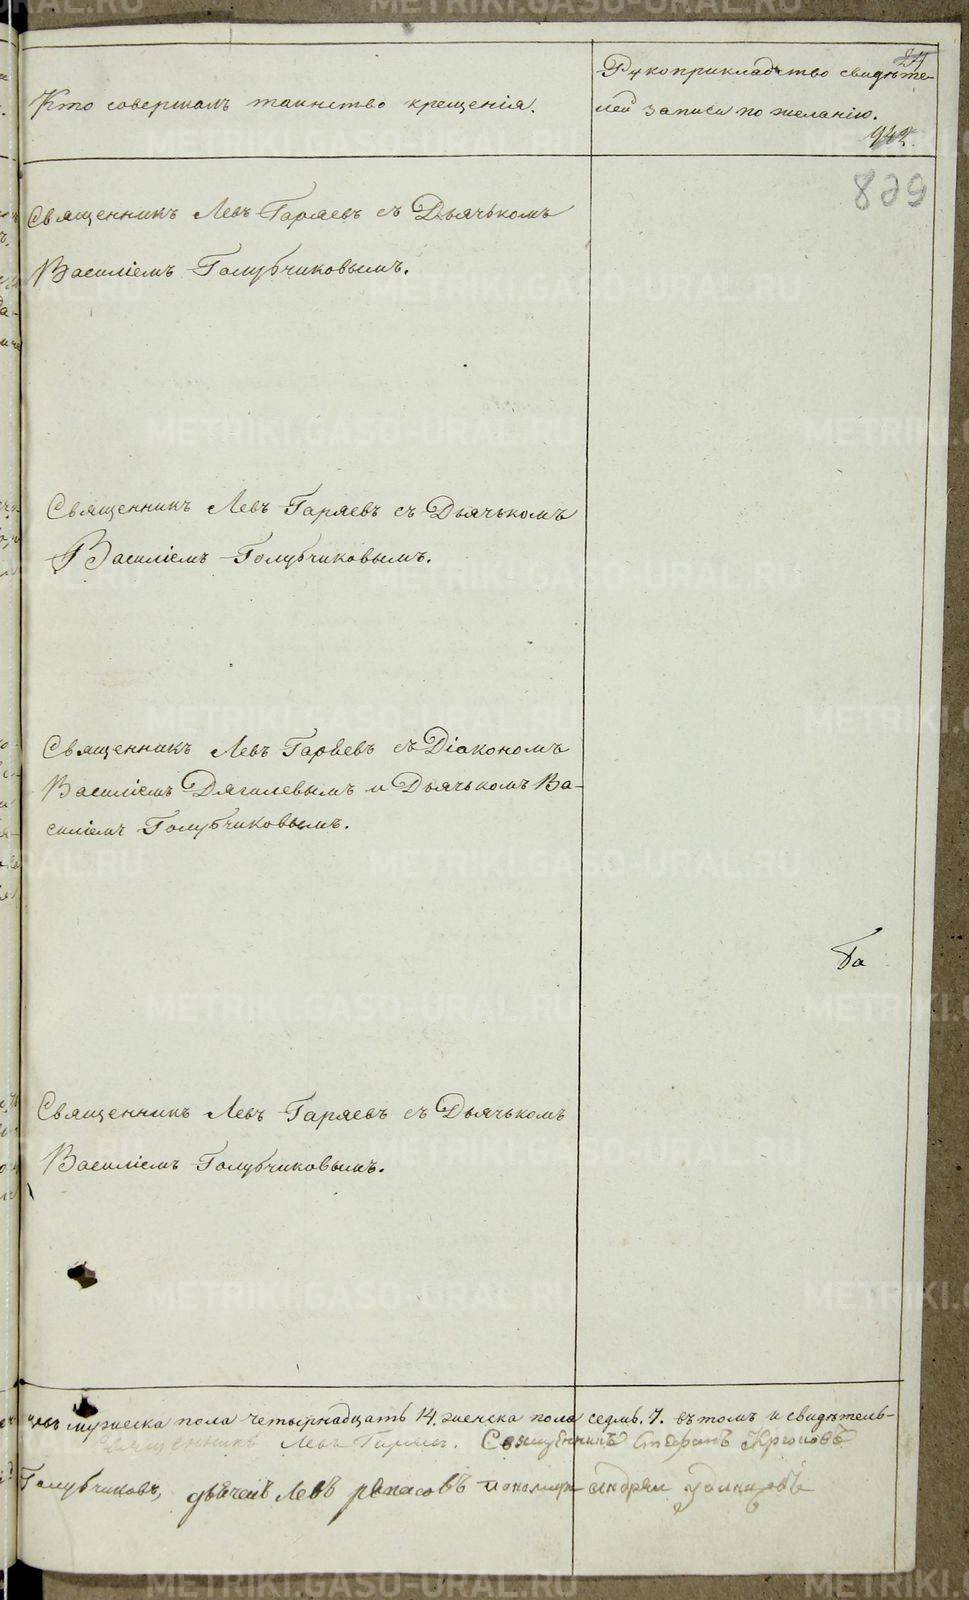 Кто совершалъ таинство крещенія.
Рукоприкладство свидѣте-
лей записи по желанію.
24
942.
829
Священникъ Левъ Гаряевъ съ Дьячькомъ
Василіемъ Голубчиковымъ.
Священникъ Левъ Гаряевъ съ Дьячькомъ
Василіемъ Голубчиковымъ.
Священникъ Левъ Гаряевъ съ Діакономъ
Василіемъ Дягилевымъ и Дьячькомъ Ва-
силіемъ Голубчиковымъ.
Священникъ Левъ Гаряевъ съ Дьячькомъ
Василіемъ Голубчиковымъ.
мужеска пола четырнадцать 14. женска пола седмь. 7. въ томъ и свидѣтель-
Священникъ Левъ Гаряевъ. Священникъ Стефанъ
Голубчиковъ, дьячекъ Левъ пономарь андрей
METRIKI.GASO-URAL.RU